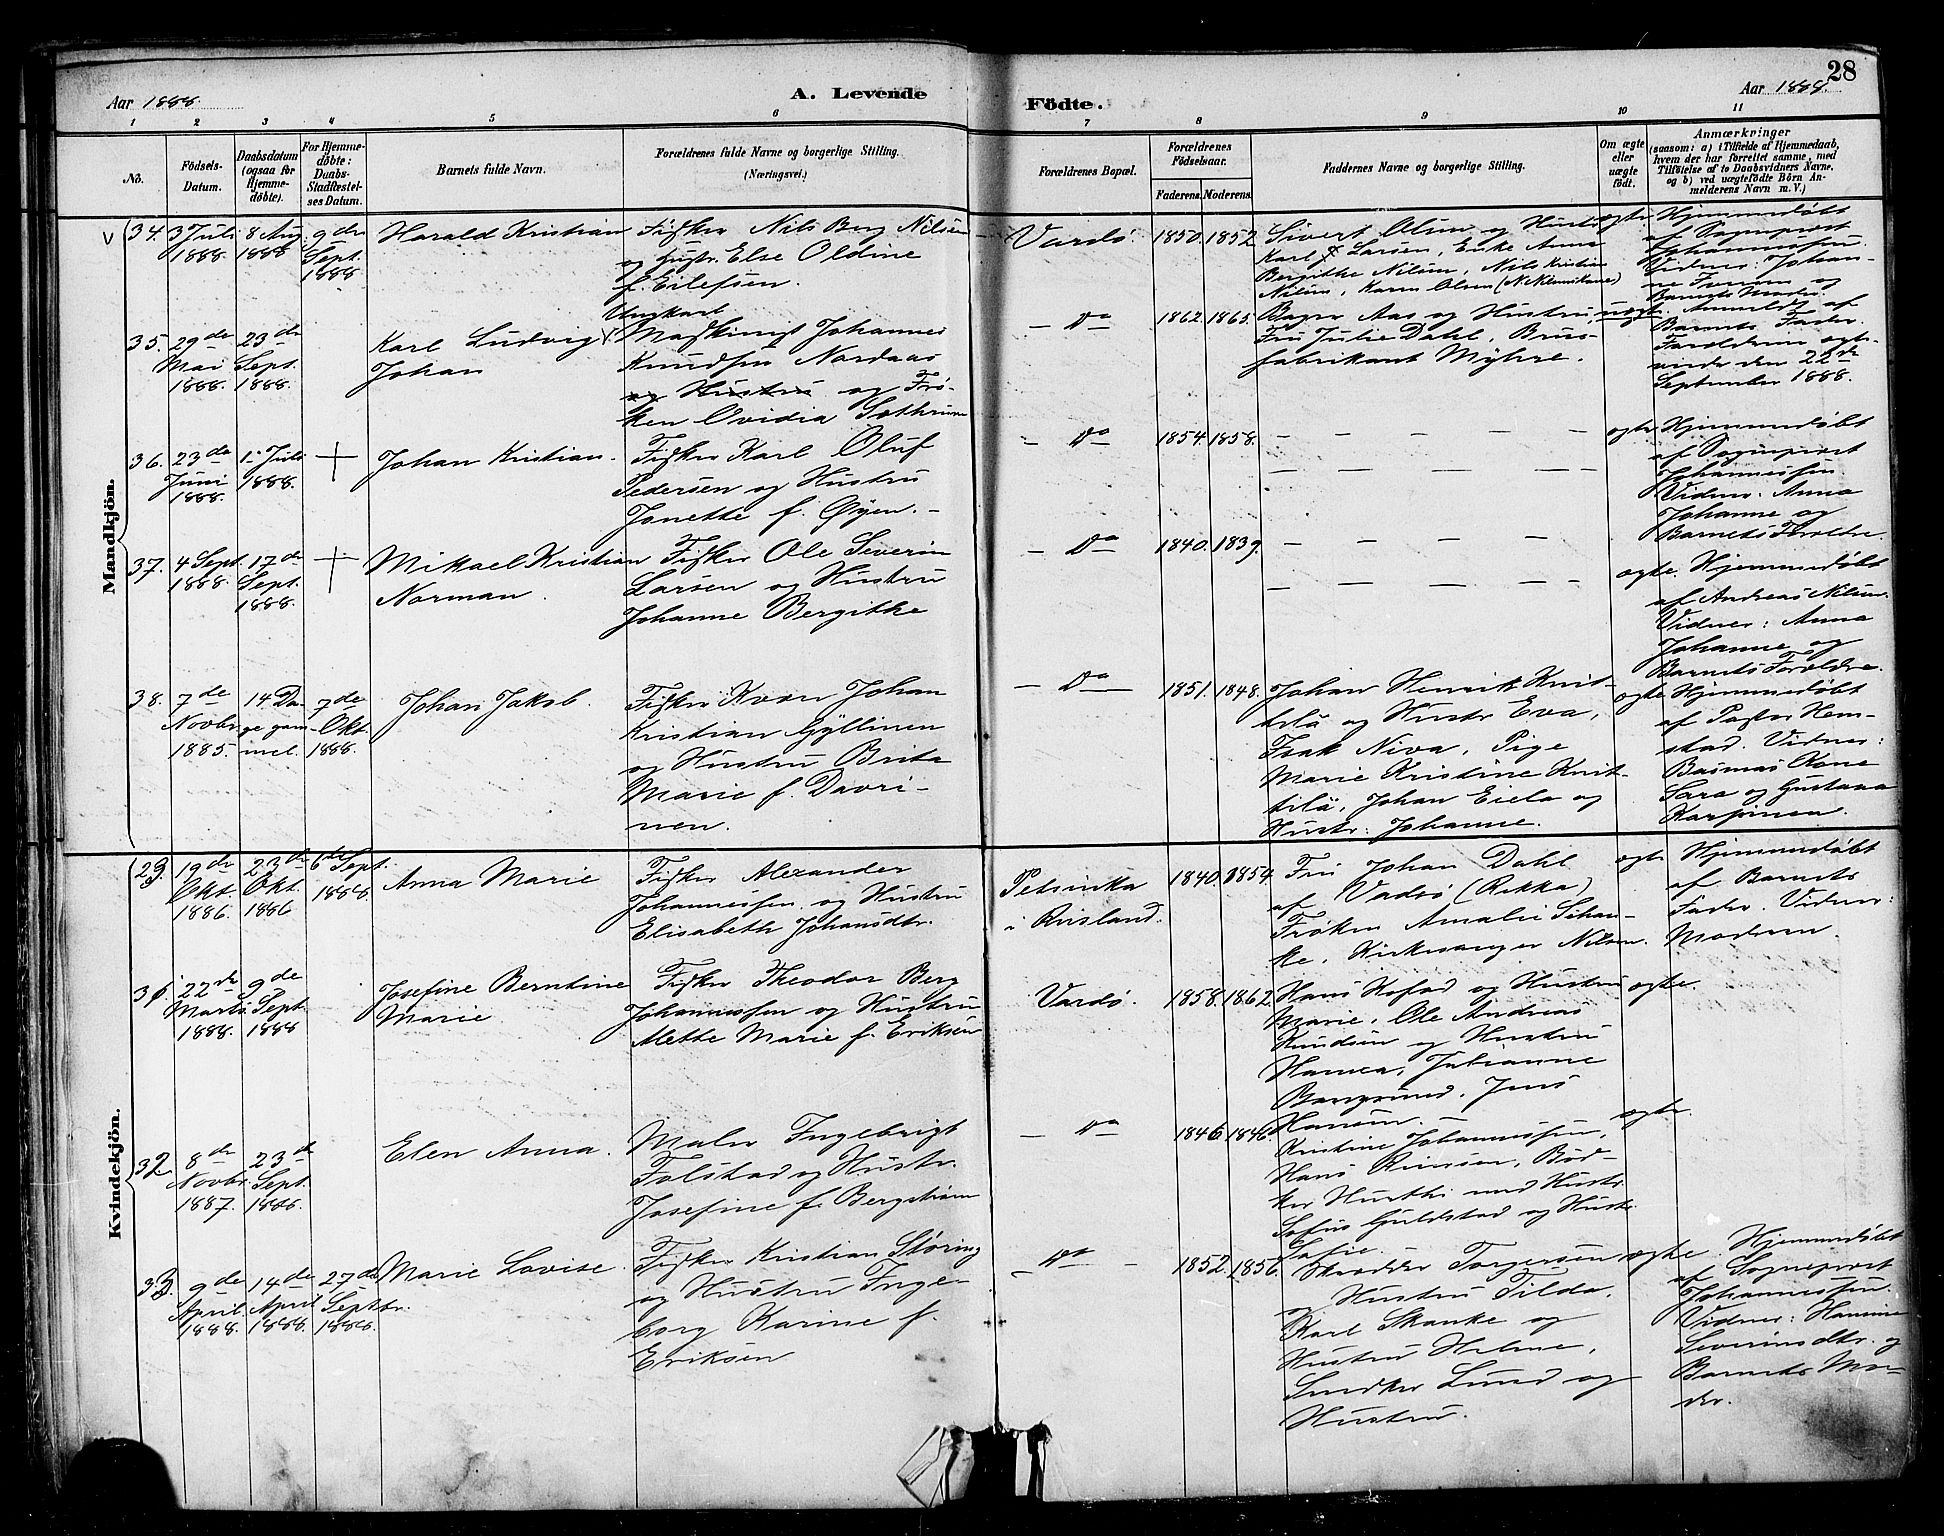 28
Aar 1888.
A. Levende
Födte.
Aar 1888.
1 2 3 4 5 6 7 8 9 10 11
No.
Födsels-
Datum.
Daabsdatum
(ogsaa for
Hjemme-
döbte).
For Hjemme-
döbte:
Daabs-
Stadfæstel-
ses Datum.
Barnets fulde Navn.
Forældrenes fulde Navne og borgerlige Stilling.
(Næringsvei.)
Forældrenes Bopæl.
Forældrenes
Födselsaar.
Faderens. Moderens.
Faddernes Navne og borgerlige Stilling.
Om ægte
eller
uægte
födt.
Anmærkninger
(saasom: a) i Tilfælde af Hjemmedaab,
hvem der har forrettet samme, med
Tilföielse af to Daabsvidners Navne,
og b) ved uægtefödte Börn An-
melderens Navn m. V.)
Mandkjön.
34. 3 Juli
1888.
8 Aug
1888
9de
Sept.
1888
Harald Kristian
Fisker Nils Berg Nilsen
og Hustr. Else Oldine
f. Eilefsen.
Vardø.
1850. 1852
Sivert Olsen og Hustr
Karl Larsen, Enke Anna
Bergithe Nilsen, Nils Kristian
Nilsen, Karen Olsen
ægte
Hjemmedøbt
af Sogneprest
Johannessen.
Vidner: Johan-
ne Jensen og
Barnets Moder.
35. 29de
Mai
1888.
23de
Sept.
1888.
Karl Ludvig
Johan
Ungkarl
Johannes
Knudsen Nordaas
og Hustru og Frø-
ken Ovidia
— Do
1862. 1865.
Bager Aas og Hustru,
Fru Julie Dahl, Brus-
fabrikant Myhre.
uægte
Anmeldt af
Barnets Fader.
Forældrene egte-
viede den 22de
September 1888.
36. 23de
Juni
1888.
1. Juli
1888.
Johan Kristian.
Fisker Karl Oluf
Pedersen og Hustru
Jonette f. Øyen. -
— Do
1854. 1858.
— — — — —
— — — —
ægte
Hjemmedøbt
af Sogneprest
Johannessen
Vidner: Anna
Johanne og
Barnets Forældre.
37. 4 Sept.
1888.
17de
Sept.
1888.
Mikael Kristian
Norman.
Fisker Ole Severin
Larsen og Hustru
Johanne Bergithe
— Do
1840. 1839.
— — — — —
— — — — —
ægte.
Hjemmedøbt
af Andreas Nilsen.
Vidner: Anna
Johanne og
Barnets Forældre.
38. 7de
Novbr.
1885.
14 Da-
ge gam-
mel.
7de
Okt.
1888.
Johan Jakob.
Fisker Kvæn Johan
Kristian Gyllinen
og Hustru Brita
Marie f. Davri-
nen.
— Do —
1851. 1848.
Johan Henrik Knit-
tilä og Hustr Eva,
Isak Niva, Pige
Marie Kristine Knit-
tilä, Johan Eiela og
Hustr. Johanne.
ægte
Hjemmedøbt
af Pastor Hem-
stad. Vidner:
Kone
Sara og Gustava
Kvindekjön.
29. 19de
Okt.
1886.
23de
Okt.
1886
6de Sept.
1888.
Anna Marie
Fisker Alexander
Johannessen og Hustru
Elisabeth Johansdtr.
Petsinka
i Rusland.
1840. 1854
Fru Johan Dahl
af Vadsø (Rikka)
Frøken Amalie Schan-
ke, Kirkesanger Nilsen.
ægte
Hjemmedøbt
af Barnets
Fader. Vidner:
Moderen.
31. 22de
Marts
1888.
9de
Sept.
1888
Josefine Berntine
Marie
Fisker Theodor Berg
Johannessen og Hustru
Mette Marie f. Eriksen
Vardø.
1858. 1862.
Hans Kofod og Hustru
Marie, Ole Andreas
Knudsen og Hustru
Hanna, Julianne
Bangsund, Jens
Hansen. —
ægte.
32. 8de
Novbr.
1887.
23de
Sept.
1888.
Elen Anna.
Maler Ingebrigt
Folstad og Hustr.
Josefine f. Bergstrøm
— Do
1846 1846.
Kristine Johannessen,
Hans Riksen, Bød-
ker med Hustr.
Sofus Guldstad og Hustr.
Sofie.
ægte.
33. 9de
April.
1888.
14de
April
1888.
27de
Septbr.
1888.
Marie Lovise.
Fisker Kristian Støring
og Hustru Inge-
borg Karine f.
Eriksen
— Do —
1852. 1856.
Skrædder Torgersen
og Hustru Tilda,
Karl Skanke og
Hustru Helene,
Snedker Lund og
Hustru.
ægte.
Hjemmedøbt
af Sogneprest
Johannessen.
Vidner: Hannine
Severinsdtr. og
Barnets Mo-
der.